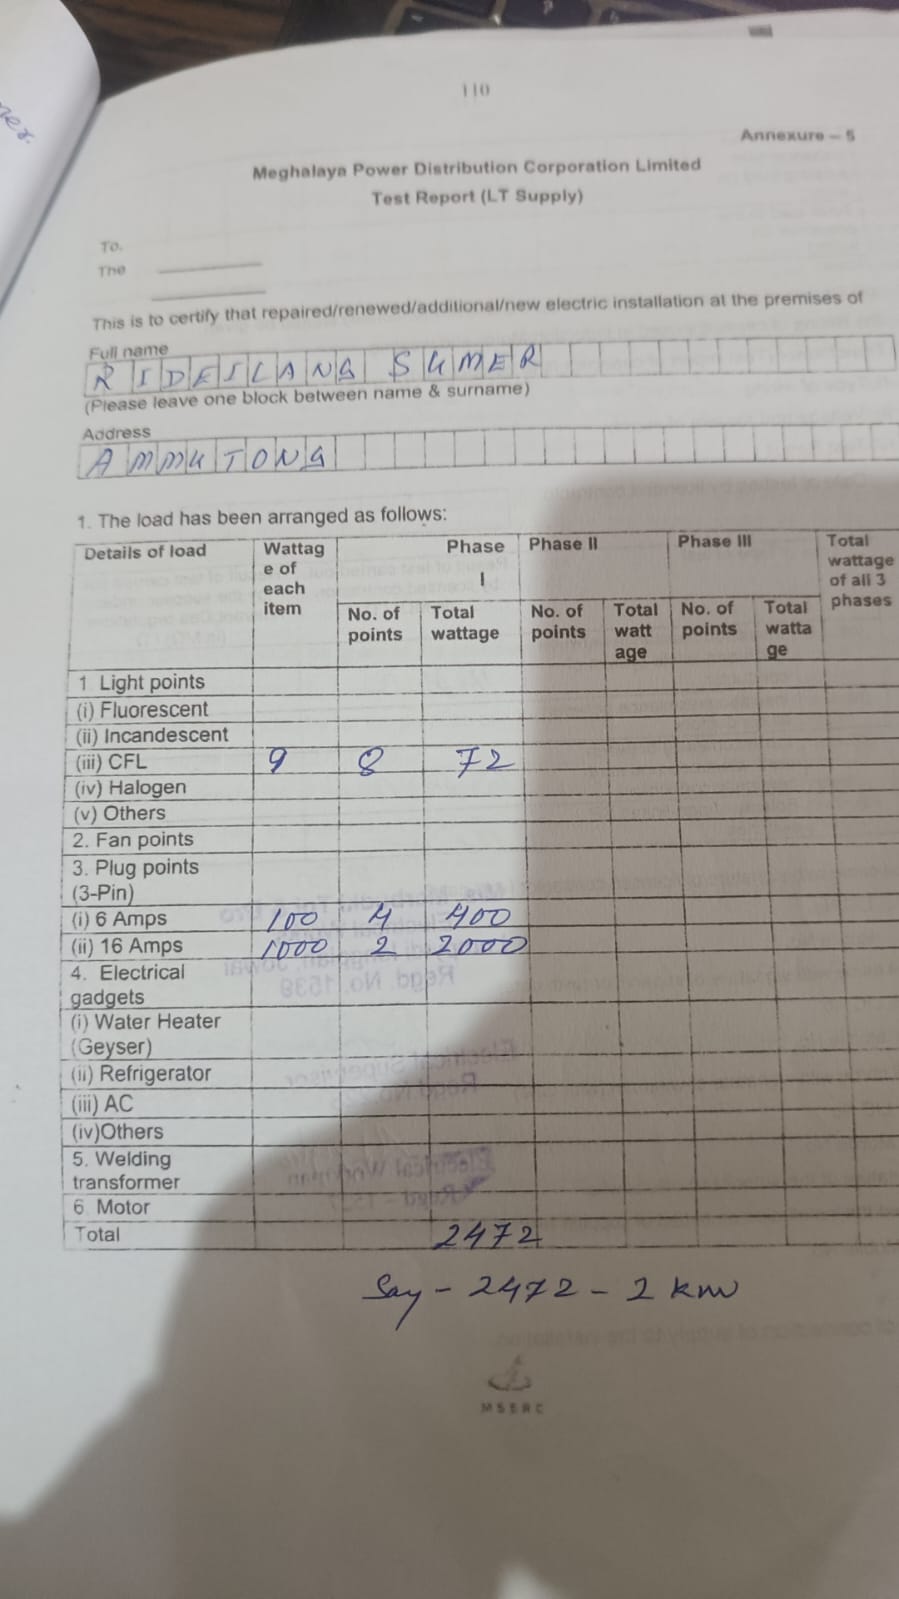 110
Annexure – 5
Meghalaya Power Distribution Corporation Limited
Test Report (LT Supply)
To.
The
This is to certify that repaired/renewed/additional/new electric installation at the premises of
Full name
RIDEILANG SUMER
(Please leave one block between name & surname)
Address
AMMUTONG
1. The load has been arranged as follows:
Details of load Wattag e of each item Phase I Phase II Phase III Total wattage of all 3 phases
No. of points Total wattage No. of points Total watt age No. of points Total watta ge
1 Light points
(i) Fluorescent
(ii) Incandescent
(iii) CFL 9 8 72
(iv) Halogen
(v) Others
2. Fan points
3. Plug points
(3-Pin)
(i) 6 Amps 100 4 400
(ii) 16 Amps 1000 2 2000
4. Electrical
gadgets
(i) Water Heater
(Geyser)
(ii) Refrigerator
(iii) AC
(iv)Others
5. Welding
transformer
6. Motor
Total 2472
Say - 2472 - 2 kw
MSERC